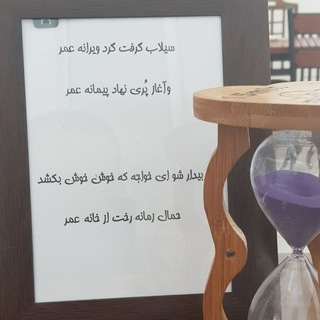 سیلاب گرفت گرد ویرانه عمر
وآغاز پُری نهاد پیمانه عمر
بیدار شو ای خواجه که خوش خوش بکشد
حمال زمانه رخت از خانه عمر